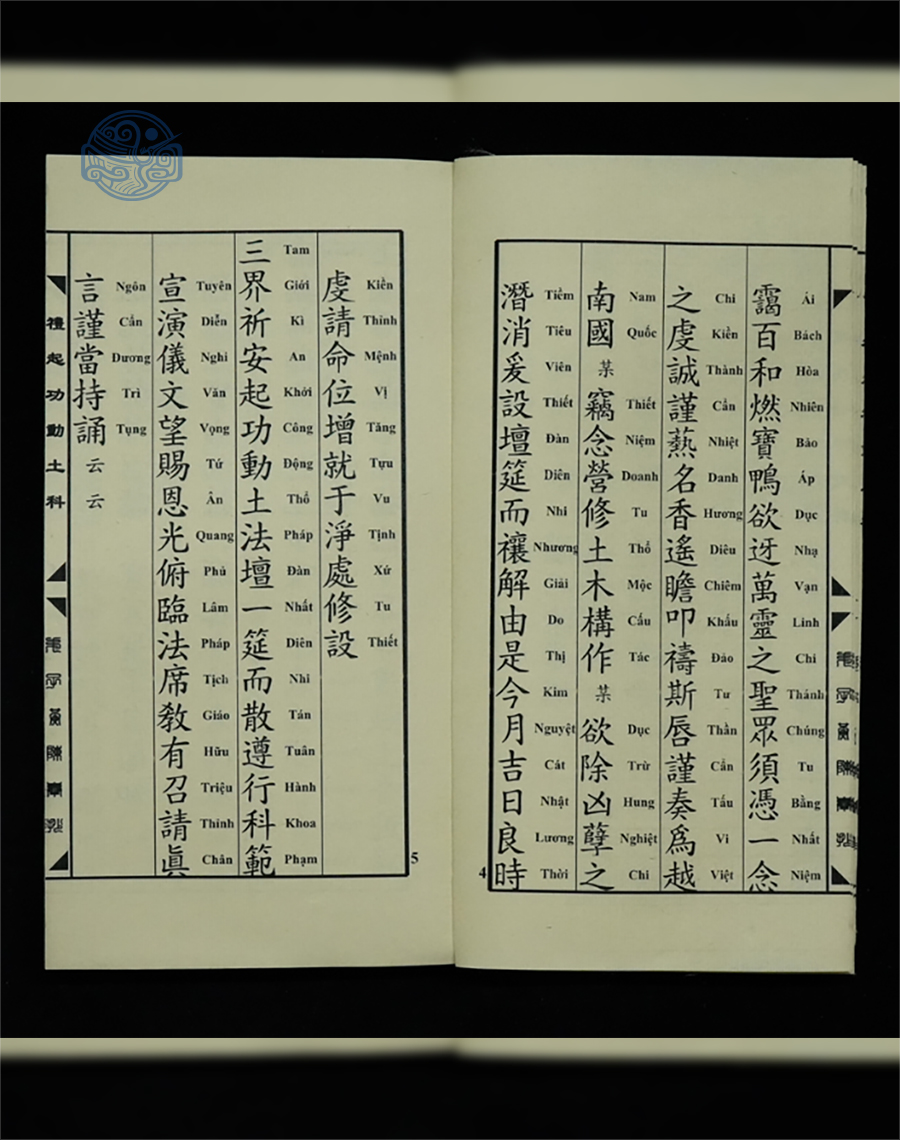 靄百和燃寶鴨欲迓萬靈之聖眾須憑一念
Ái Bách Hòa Nhiên Bảo Áp Dục Nhạ Vạn Linh Chi Thánh Chúng Tu Bằng Nhất Niệm
之虔誠謹爇名香遙瞻叩禱斯唇謹奏爲越
Chi Kiền Thành Cẩn Nhiệt Danh Hương Diêu Chiêm Khấu Đảo Tư Thần Cẩn Tấu Vi Việt
南國某竊念營修土木構作某欲除凶孽之
Nam Quốc Thiết Niệm Doanh Tu Thổ Mộc Cấu Tác Dục Trừ Hung Nghiệt Chi
潛消爰設壇筵而禳解由是今月吉日良時
Tiềm Tiêu Viên Thiết Đàn Diên Nhi Nhương Giải Do Thị Kim Nguyệt Cát Nhật Lương Thời
4
虔請命位增就于淨處修設
Kiền Thỉnh Mệnh Vị Tăng Tựu Vu Tịnh Xứ Tu Thiết
三界祈安起功動土法壇一筵而散遵行科範
Tam Giới Kì An Khởi Công Động Thổ Pháp Đàn Nhất Diên Nhi Tán Tuân Hành Khoa Phạm
宣演儀文望賜恩光俯臨法席敎有召請眞
Tuyên Diễn Nghi Văn Vọng Tứ Ân Quang Phủ Lâm Pháp Tịch Giáo Hữu Triệu Thỉnh Chân
言謹當持誦云云
Ngôn Cẩn Dương Trì Tụng
5
禮起功動土科